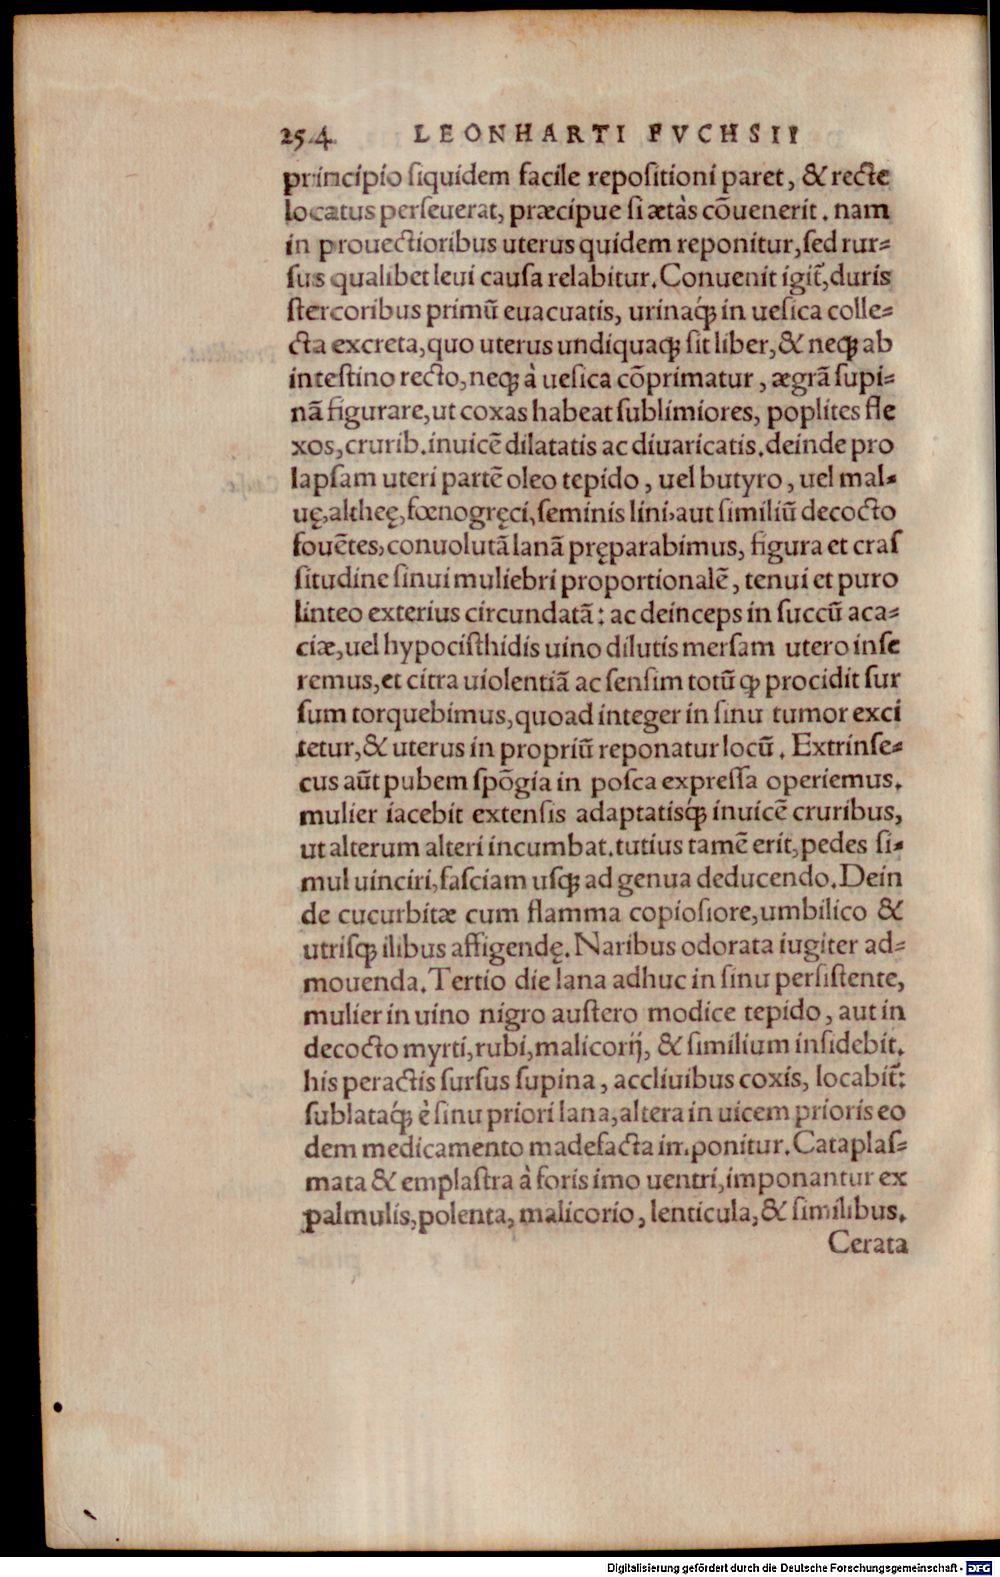 254 LEONHARTI FVCHSII
principio siquidem facile repositioni paret, & recte
locatus perseuerat, præcipue si ætàs cōuenerit. nam
in prouectioribus uterus quidem reponitur, sed rur-
sus qualibet leui causa relabitur. Conuenit igit̃, duris
stercoribus primũ euacuatis, urinaq́ꝫ in uesica colle-
cta excreta, quo uterus undiquaqꝫ sit liber, & neqꝫ ab
intestino recto, neqꝫ à uesica cōprimatur, ægrã supi-
nã figurare, ut coxas habeat sublimiores, poplites fle
xos, crurib. inuicẽ dilatatis ac diuaricatis. deinde pro
lapsam uteri partẽ oleo tepido, uel butyro, uel mal-
uę, altheę, fœnogręci, seminis lini, aut similiũ decocto
fouẽtes, conuolutã lanã pręparabimus, figura et cras
situdine sinui muliebri proportionalẽ, tenui et puro
linteo exterius circundatã: ac deinceps in succũ aca-
ciæ, uel hypocisthidis uino dilutis mersam utero inse
remus, et citra uiolentiã ac sensim totũ qꝫ procidit sur
sum torquebimus, quoad integer in sinu tumor exci
tetur, & uterus in propriũ reponatur locũ. Extrinse-
cus aũt pubem spōgia in posca expressa operiemus.
mulier iacebit extensis adaptatisq́ꝫ inuicẽ cruribus,
ut alterum alteri incumbat. tutius tamẽ erit, pedes si-
mul uinciri, fasciam usqꝫ ad genua deducendo. Dein
de cucurbitæ cum flamma copiosiore, umbilico &
utrisqꝫ ilibus affigendę. Naribus odorata iugiter ad-
mouenda. Tertio die lana adhuc in sinu persistente,
mulier in uino nigro austero modice tepido, aut in
decocto myrti, rubi, malicorij, & similium insidebit.
his peractis sursus supina, accliuibus coxis, locabit̃:
sublataq́ꝫ è sinu priori lana, altera in uicem prioris eo
dem medicamento madefacta imponitur. Cataplas-
mata & emplastra à foris imo uentri, imponantur ex
palmulis, polenta, malicorio, lenticula, & similibus.
Cerata
Digitalisierung gefördert durch die Deutsche Forschungsgemeinschaft - DFG